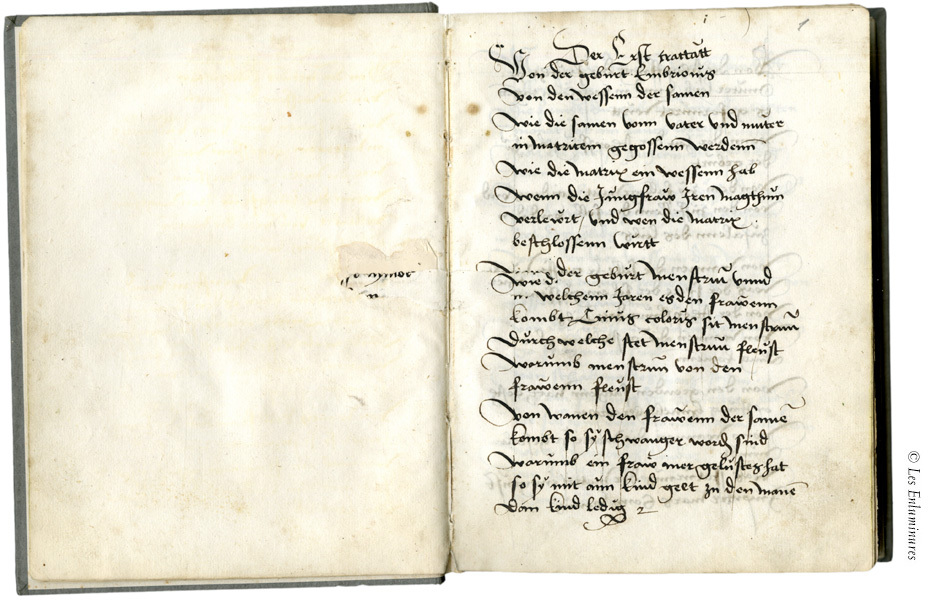 Der Erst trattatt
Von der geburt Embrionis
Von den wessenn der samen
Wie die samen vonn vater vnd muter
in matricem gegossenn werdenn
Wie die matrix ein wessenn hab
Wenn die Jungfraw Iren magthum
verleurt / vnd wen die matrix
beschlossenn wirtt
der geburt menstruu vnnd
welchenn Jaren es den frawenn
kombt Cuius coloris sit menstruu
Durch welche stet menstruu fleust
Warumb menstruu von den
frawenn fleust
Von wanen den frawenn der same
kombt so sy schwanger sind
Warumb ein fraw mer gelustes hat
so sy mit aim kind geet zu den mane
dan kind ledig
© Les Enluminures